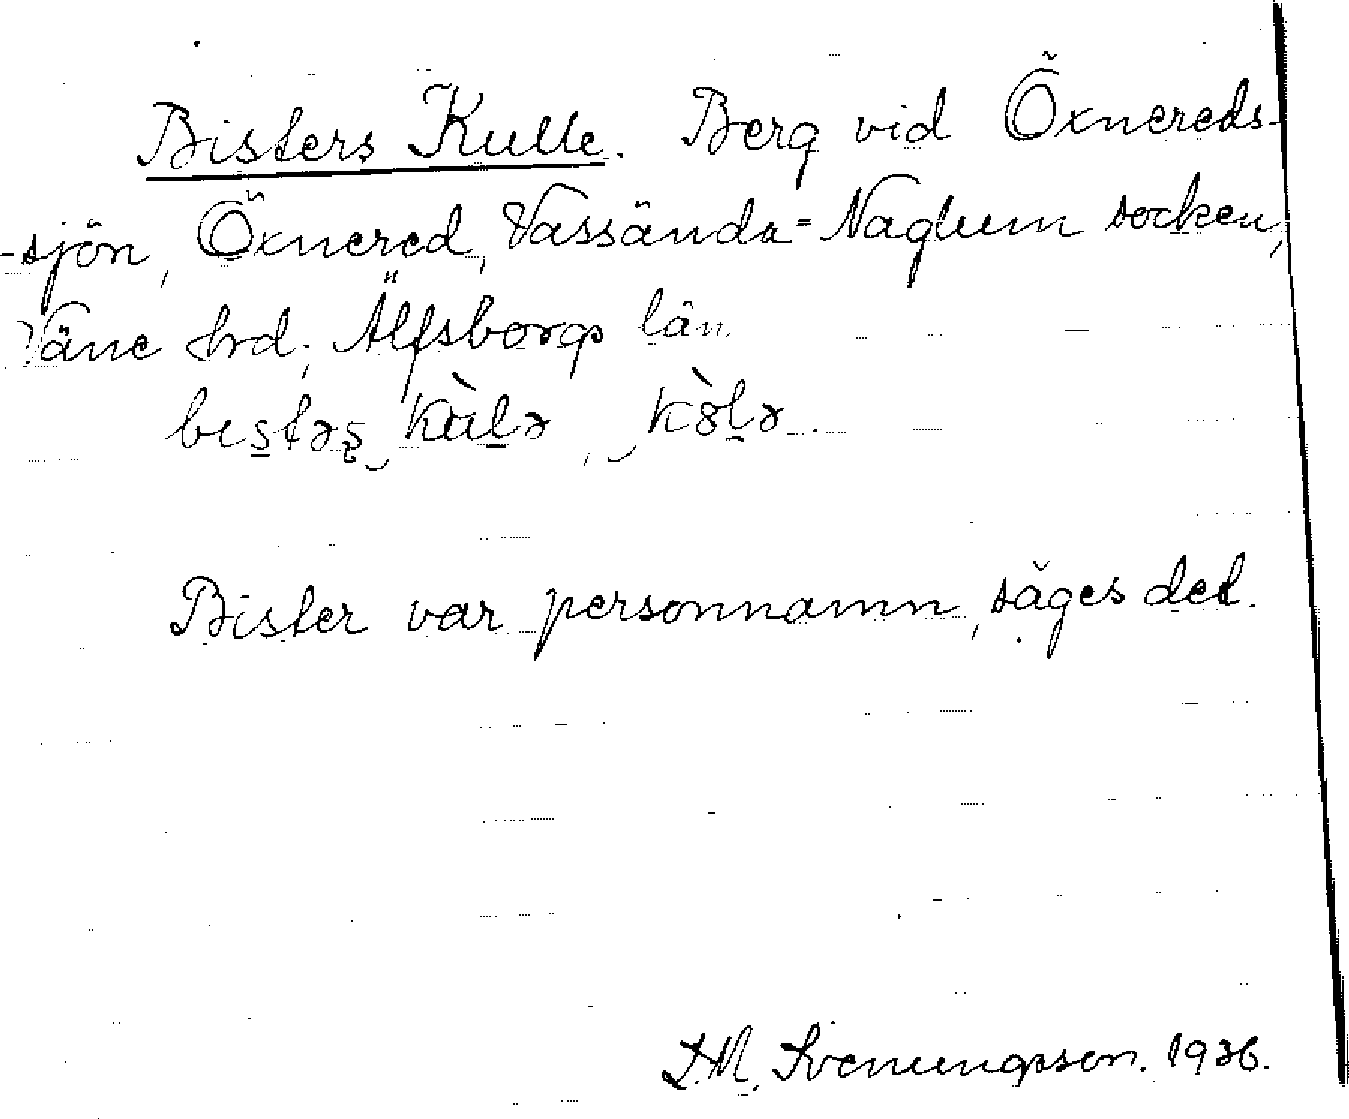 Bisters Kulle. Berg vid Öxnereds-
-sjön, Öxnered, Vassända=Naglum socken,
Väne hrd, Älfsborgs län.
bestəs kulə, kölə.
Bister var personnamn, säges det.
S.M. Svenungsson. 1936.